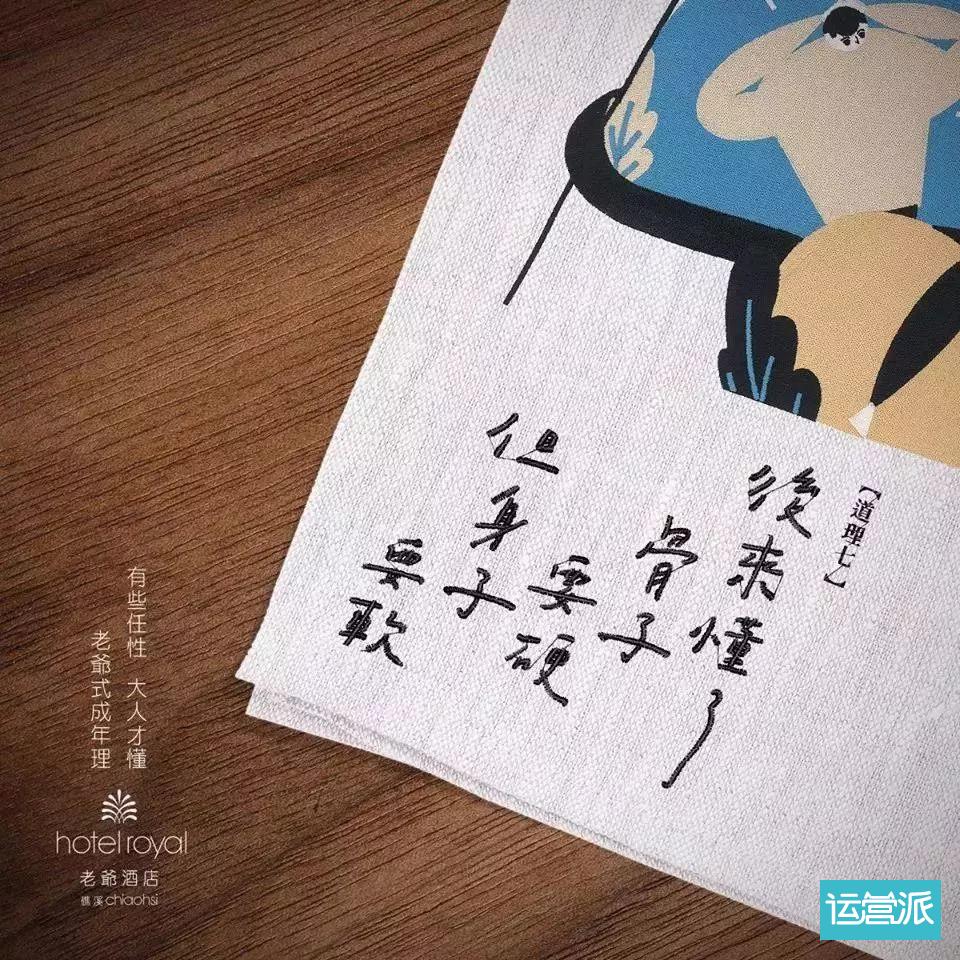 【道理七】
後来懂了
骨子
要硬
但身子
要軟
有些任性 大人才懂
老爺式成年理
hotel royal
老爺酒店
礁溪 chiaohsi
运营派